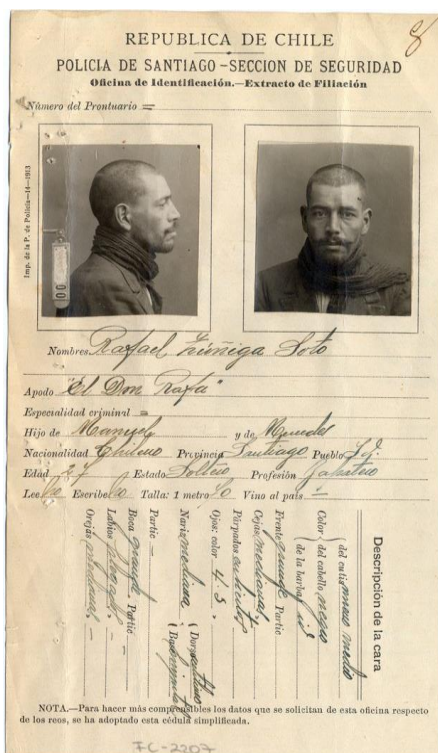 8
REPUBLICA DE CHILE
POLICIA DE SANTIAGO-SECCION DE SEGURIDAD
Oficina de Identificación.—Extracto de Filiación
Número del Prontuario =
Imp. de la P. de Policía—14—1913
Nombres Rafael Zúñiga Soto
Apodo "El Don Rafa"
Especialidad criminal =
Hijo de Manuel y de Mercedes
Nacionalidad Chileno Provincia Santiago Pueblo Id.
Edad 27 Estado Soltero Profesión Zapatero
Lee Escribe Talla: 1 metro Vino al país —
Descripción de la cara
Color del cutis medio
del cabello negro
de la barba id
Frente grande Partic
Cejas medianas
Párpados
Ojos: color 4-3
Nariz mediana Dorso
Base
Partic —
Boca grande Partic —
Labios
Orejas medianas —
NOTA.—Para hacer más comprensibles los datos que se solicitan de esta oficina respecto
de los reos, se ha adoptado esta cédula simplificada.
FC-2207